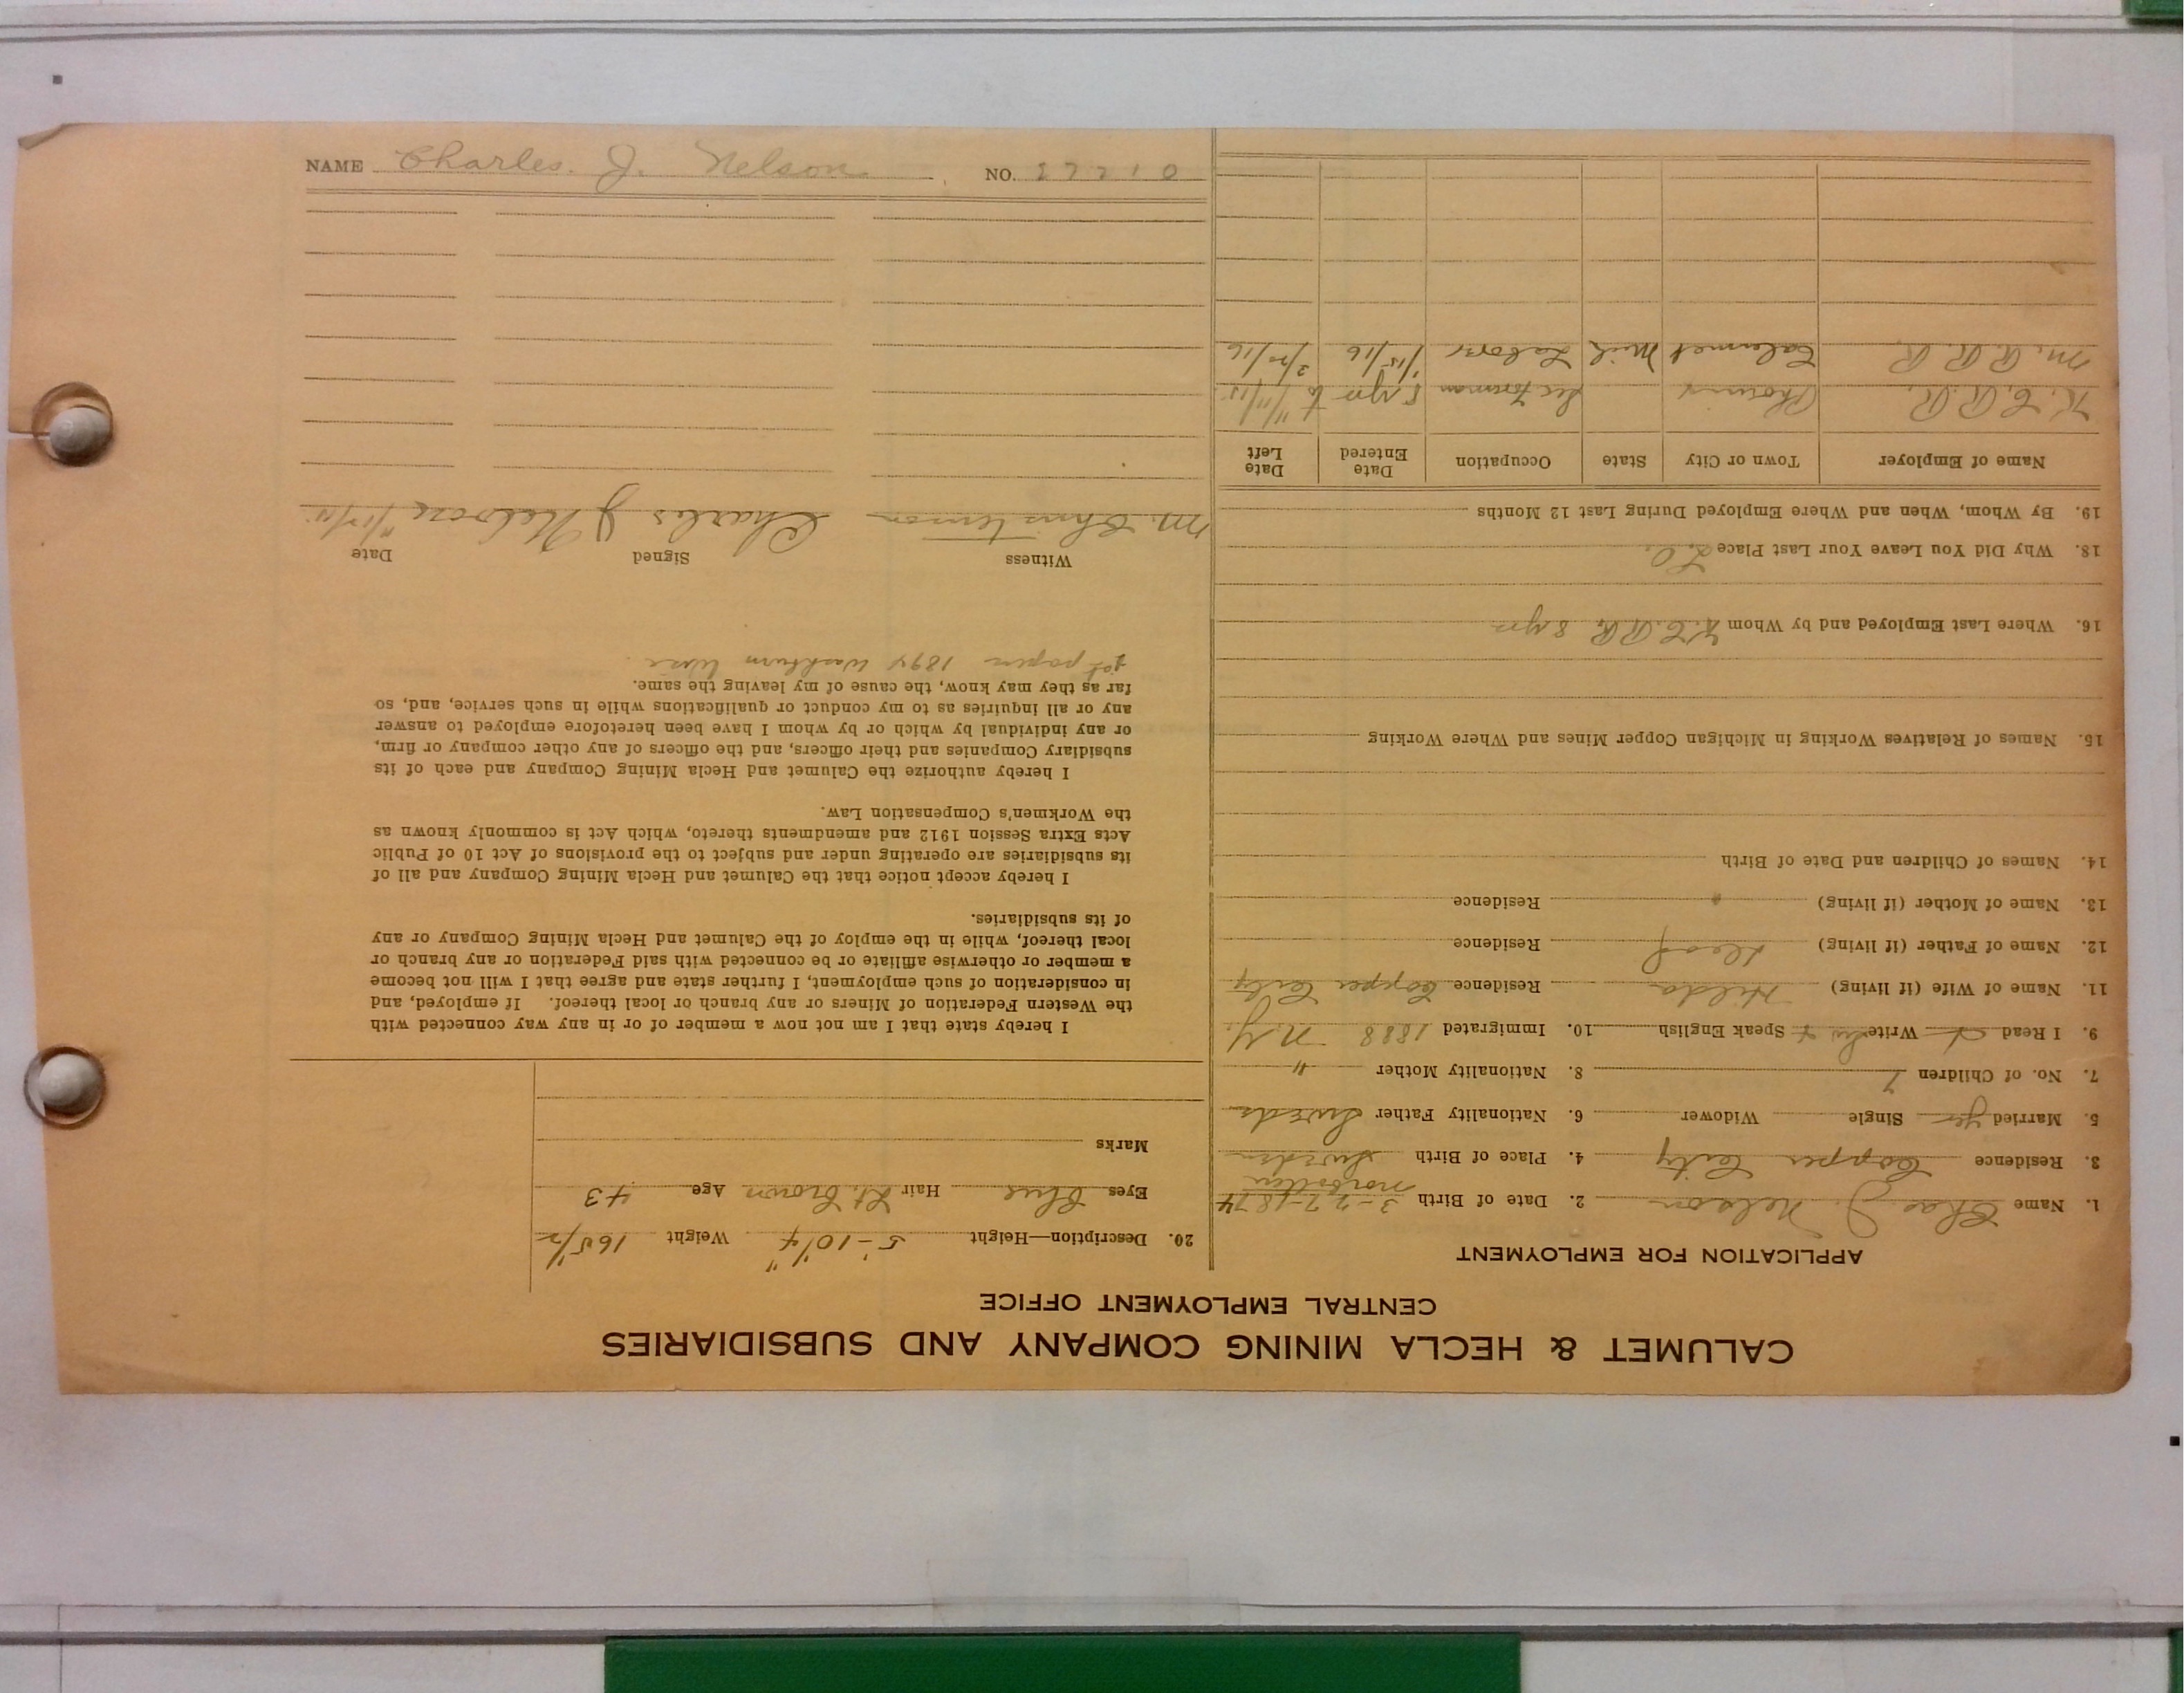 CALUMET & HECLA MINING COMPANY AND SUBSIDIARIES
CENTRAL EMPLOYMENT OFFICE
APPLICATION FOR EMPLOYMENT
1. Name Chas J. Nelson 2. Date of Birth 3-27-1874
Norbotten
3. Residence Copper City 4. Place of Birth Sweden
5. Married yes Single Widower 6. Nationality Father Swede
7. No. of Children 7 8. Nationality Mother "
9. I Read Write Speak English 10. Immigrated 1888 N.Y.
11. Name of Wife (if living) Hilda Residence Copper City
12. Name of Father (if living) Residence
13. Name of Mother (if living) Residence
14. Names of Children and Date of Birth
15. Names of Relatives Working in Michigan Copper Mines and Where Working
16. Where Last Employed and by Whom K.C.R.R. 8 yrs
18. Why Did You Leave Your Last Place L.O.
19. By Whom, When and Where Employed During Last 12 Months
Name of Employer Town or City State Occupation Date Entered Date Left
K.C.R.R. Phoenix Sec Foreman 8 yrs to 11/11/15
M.R.R.R. Calumet Mich Labor 1/15/16
20. Description—Height 5'-10 1/4" Weight 165 1/2
Eyes Blue Hair Lt. Brown Age 43
Marks
I hereby state that I am not now a member of or in any way connected with
the Western Federation of Miners or any branch or local thereof. If employed, and
in consideration of such employment, I further state and agree that I will not become
a member or otherwise affiliate or be connected with said Federation or any branch or
local thereof, while in the employ of the Calumet and Hecla Mining Company or any
of its subsidiaries.
I hereby accept notice that the Calumet and Hecla Mining Company and all of
its subsidiaries are operating under and subject to the provisions of Act 10 of Public
Acts Extra Session 1912 and amendments thereto, which Act is commonly known as
the Workmen's Compensation Law.
I hereby authorize the Calumet and Hecla Mining Company and each of its
subsidiary Companies and their officers, and the officers of any other company or firm,
or any individual by which or by whom I have been heretofore employed to answer
any or all inquiries as to my conduct or qualifications while in such service, and, so
far as they may know, the cause of my leaving the same.
1st papers 1894 Washburn Wisc.
Witness Signed Date
M. Christenson Charles J Nelson
NAME Charles. J. Nelson NO. 27210